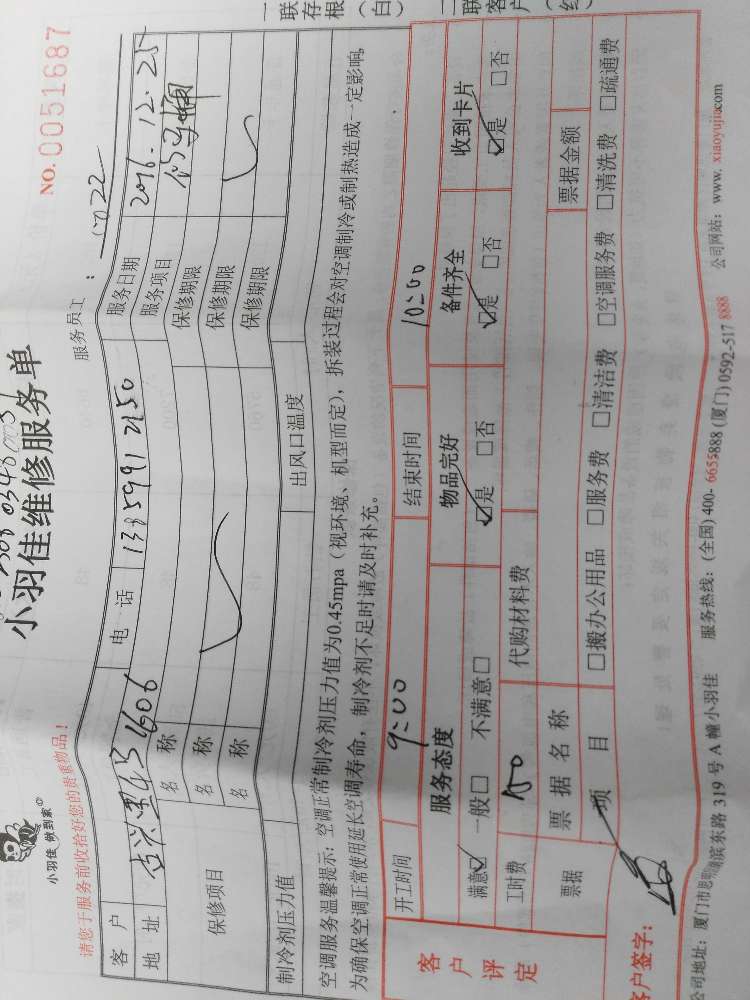 一联存根(白)
二联客户
小羽佳 做到家
小羽佳维修服务单
NO. 0051687
请您于服务前收拾好您的贵重物品!
服务员工:
客户 电话 13859912150 服务日期 2016.12.25
地址 1606 服务项目
保修项目 名称 保修期限
名称 保修期限
名称 保修期限
制冷剂压力值 出风口温度
空调服务温馨提示:空调正常制冷剂压力值为0.45mpa(视环境、机型而定),拆装过程会对空调制冷或制热造成一定影响,
为确保空调正常使用延长空调寿命,制冷剂不足时请及时补充。
客户评定
开工时间 9:00 结束时间 10:00
服务态度 物品完好 备件齐全 收到卡片
满意☑ 一般□ 不满意□ ☑是 □否 ☑是 □否 ☑是 □否
工时费 150 代购材料费
票据 票据名称 票据金额
项目 □搬办公用品 □服务费 □清洁费 □空调服务费 □清洗费 □疏通费
客户签字:
公司地址:厦门市思明湖滨东路319号A幢小羽佳 服务热线:(全国) 400-6655888 (厦门) 0592-517 8888 公司网站:www. xiaoyujia.com